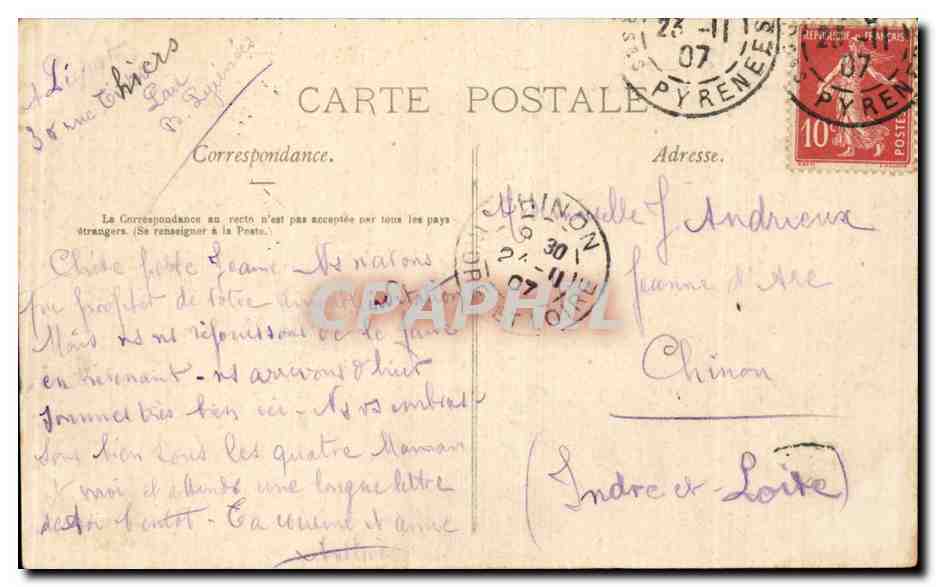 38 rue Thiers
Pau
B. Pyrénées
CARTE POSTALE
Correspondance.
Adresse.
La Correspondance au recto n'est pas acceptée par tous les pays
étrangers. (Se renseigner à la Poste.)
23 -11
07
PYRENEES
23 -11
07
PYRENEES
REPUBLIQUE FRANÇAISE
10c
POSTES
CHINON
30
-11
07
INDRE ET LOIRE
Chère petite Jeanne - Ns n'avons
pu profiter de votre invitation
Mais ns ns réjouissons de le faire
en revenant - ns arrivons
sommes très bien ici - Ns vs embras
sons bien tous les quatre Maman
et moi et attends une longue lettre
de toi bientôt - Ta cousine et amie
Mademoiselle J Andrieux
Jeanne d'Arc
Chinon
(Indre et Loire)
CPAPHIL